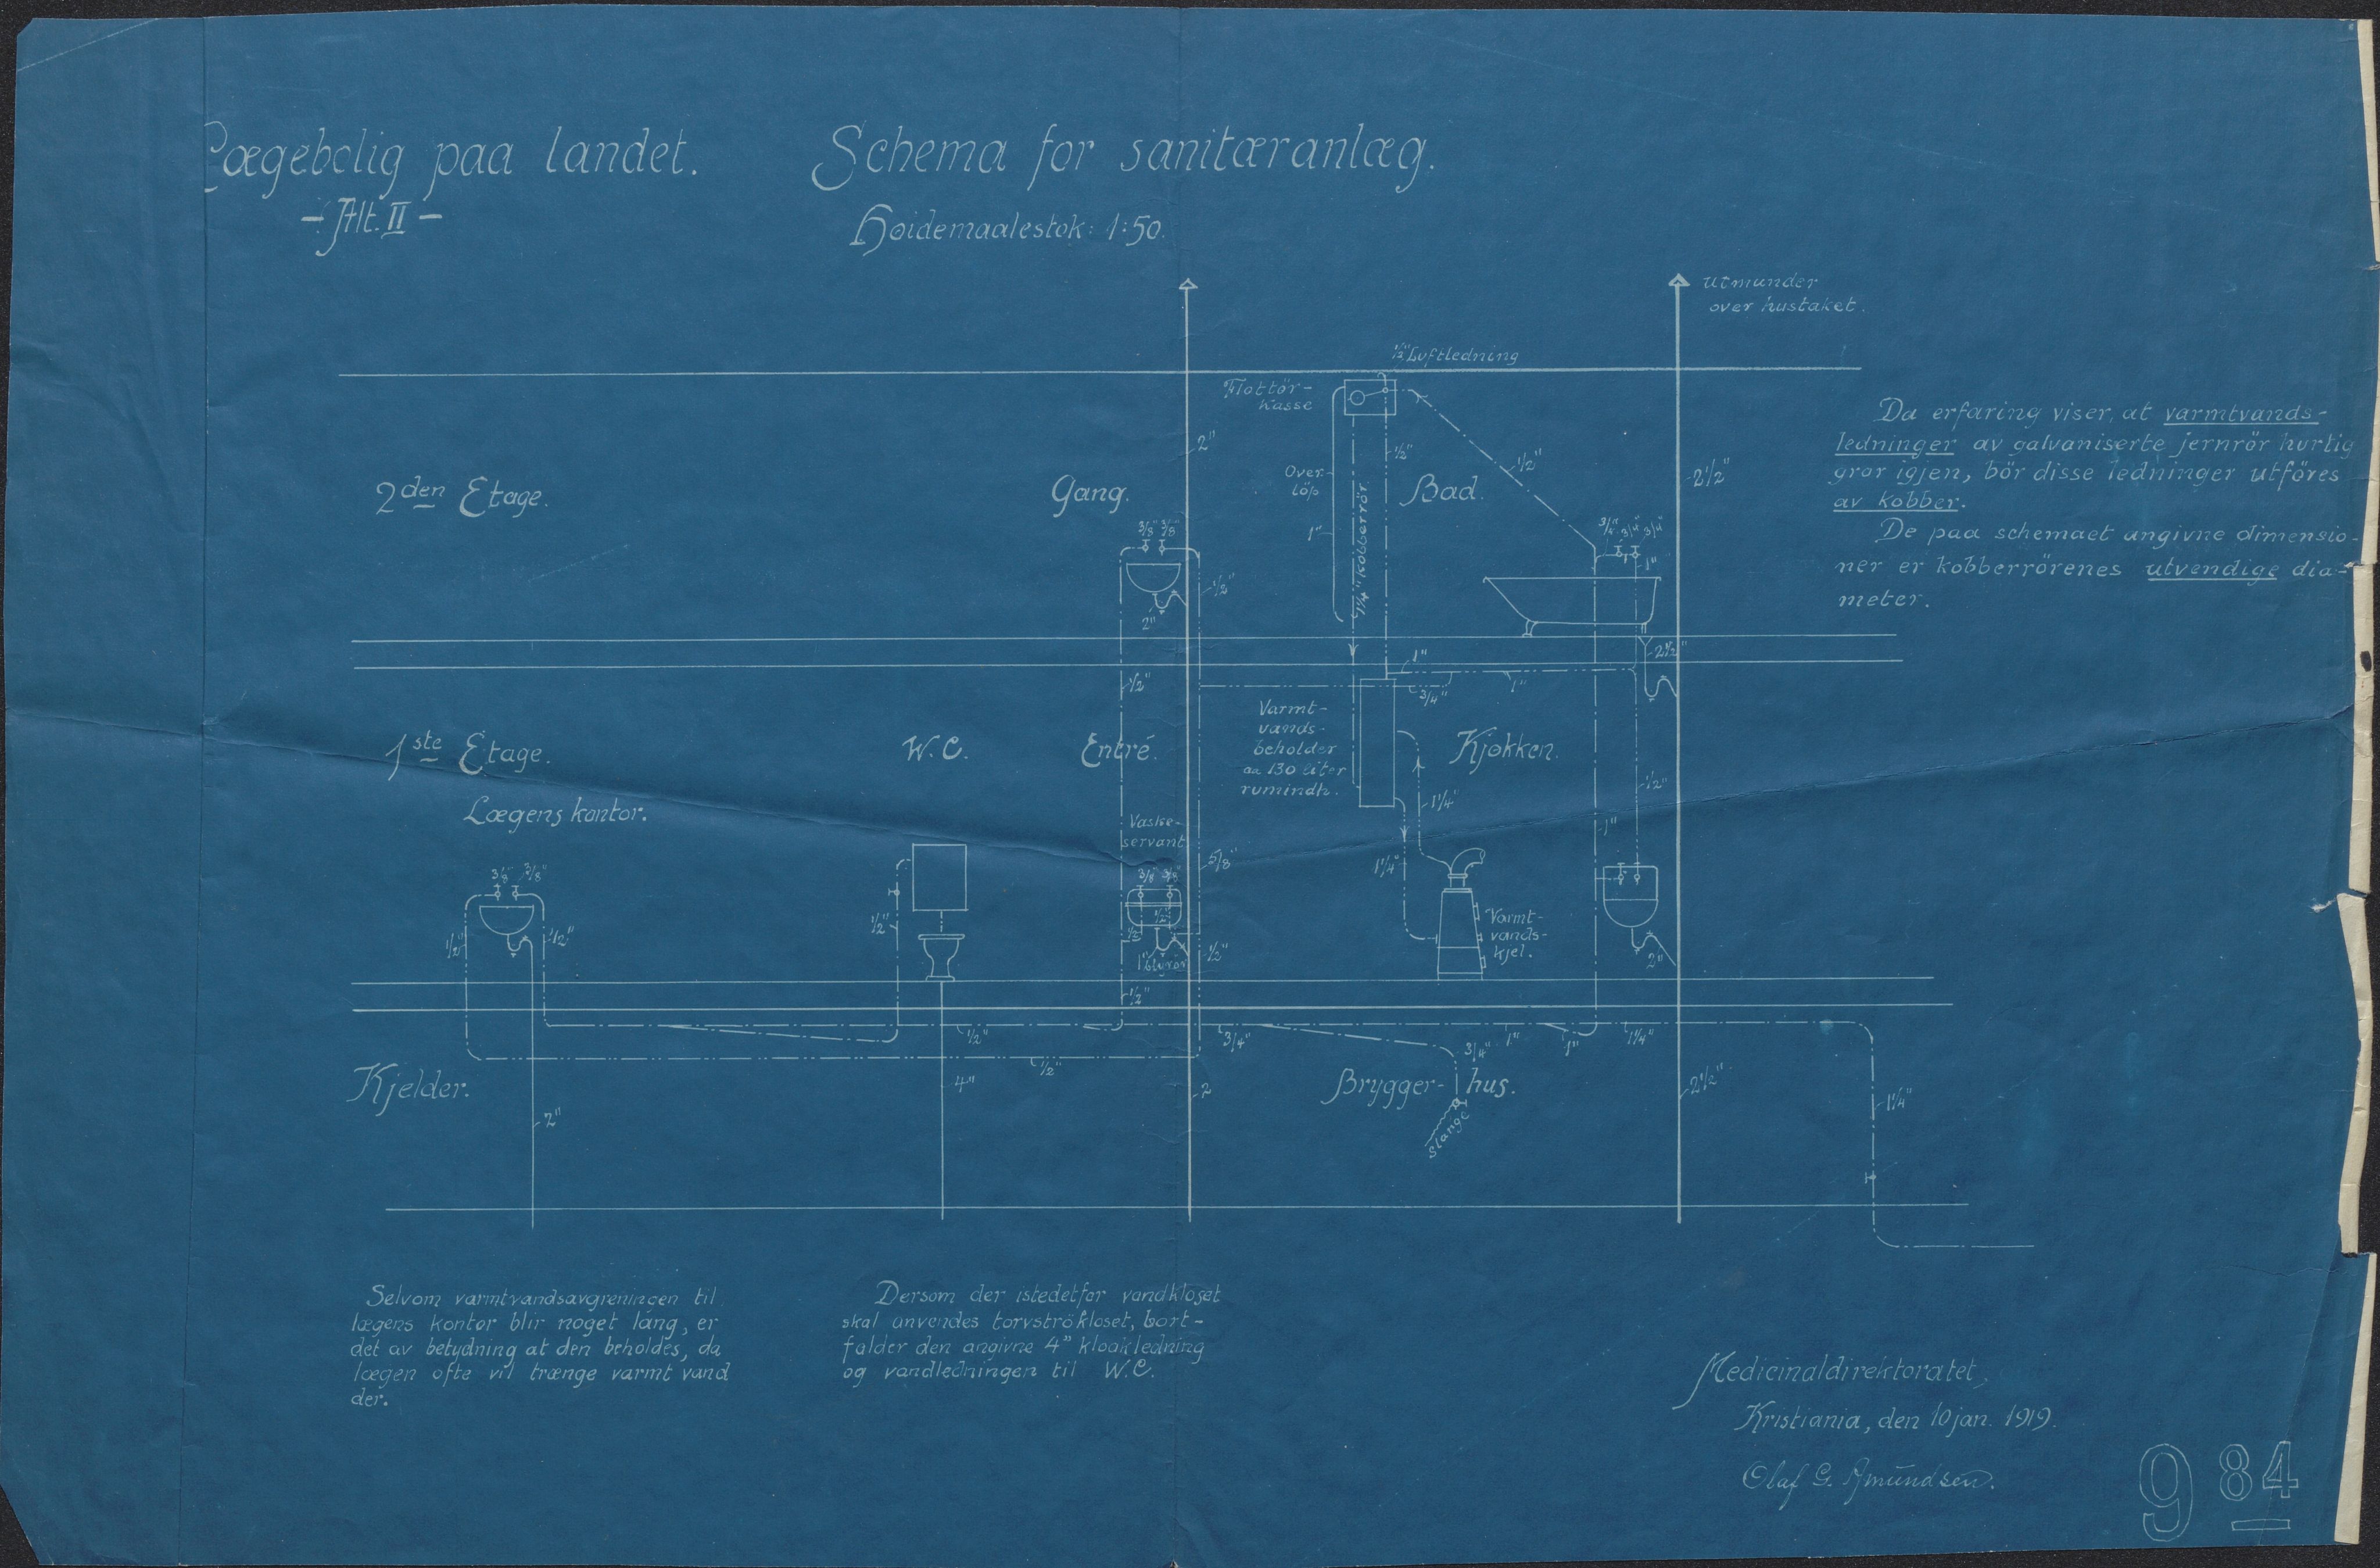 Lægebolig paa landet.
- Alt. II -
Schema for sanitæranlæg.
Høidemaalestok: 1:50.
utmunder
over hustaket.
1/2" Luftledning
Flottör-
kasse
2"
Over-
löp
1/2"
1/2"
2 1/2"
1"
1 1/4" Kobberrör.
2den Etage.
Gang.
Bad.
3/8" 3/8"
3/4" 3/4" 3/4"
1"
1/2"
2"
Da erfaring viser, at varmtvands-
ledninger av galvaniserte jernrör hurtig
gror igjen, bör disse ledninger utföres
av kobber.
De paa schemaet angivne dimensio-
ner er kobberrörenes utvendige dia-
meter.
1/2"
1"
3/4"
1"
2 1/2"
1ste Etage.
W.C.
Entré.
Varmt-
vands-
beholder
aa 130 liter
rumindh.
Kjøkken.
Lægens kontor.
1 1/4"
1/2"
1"
Vaske-
servant
5/8"
1 1/4"
3/8" 3/8"
3/8" 3/8"
1/2"
1/2"
1/2"
1/2"
1/2"
1/2"
1" blyrör
Varmt-
vands-
kjel.
2"
1/2"
1/2"
1/2"
3/4"
3/4"
1"
1"
1 1/4"
Kjelder.
2"
4"
2
Brygger-hus.
Slange
2 1/2"
1 1/4"
Selvom varmtvandsavgreningen til
lægens kontor blir noget lang, er
det av betydning at den beholdes, da
lægen ofte vil trænge varmt vand
der.
Dersom der istedetfor vandkloset
skal anvendes torvströkloset, bort-
falder den angivne 4" kloakledning
og vandledningen til W.C.
Medicinaldirektoratet,
Kristiania, den 10 jan. 1919.
Olaf G. Amundsen.
9 84